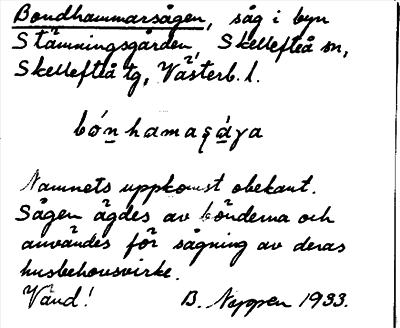 Bondhammarsågen, såg i byn
Stämningsgården, Skellefteå sn,
Skellefteå tg, Västerb. l.
bón̲hamaşá̲ga
Namnets uppkomst obekant.
Sågen ägdes av bönderna och
användes för sågning av deras
husbehovsvirke.
Vänd! B. Nygren 1933.